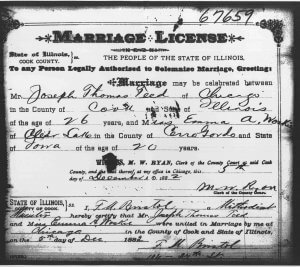 67659
MARRIAGE LICENSE
State of Illinois,
COOK COUNTY.
THE PEOPLE OF THE STATE OF ILLINOIS,
To any Person Legally Authorized to Solemnize Marriage, Greeting:
Marriage may be celebrated between
Mr. Joseph Thomas Teed of Chicago
in the County of Cook and State of Illinois
of the age of 26 years, and M Emma A.
of Lake in the County of Cerro Gordo and State
of Iowa of the age of 20 years.
WITNESS, M. W. RYAN, Clerk of the County Court of said Cook
County, and the seal thereof, at my office in Chicago, this 5th
day of December
M. W. Ryan
Clerk of the County Court.
STATE OF ILLINOIS,
COUNTY OF COOK
I, F. M. Bristol a Methodist
Minister hereby certify that Mr. Joseph Thomas Teed
and Miss Emma A. were united in Marriage by me at
Chicago in the County of Cook and State of Illinois,
on the day of Dec. 1882
F. M. Bristol